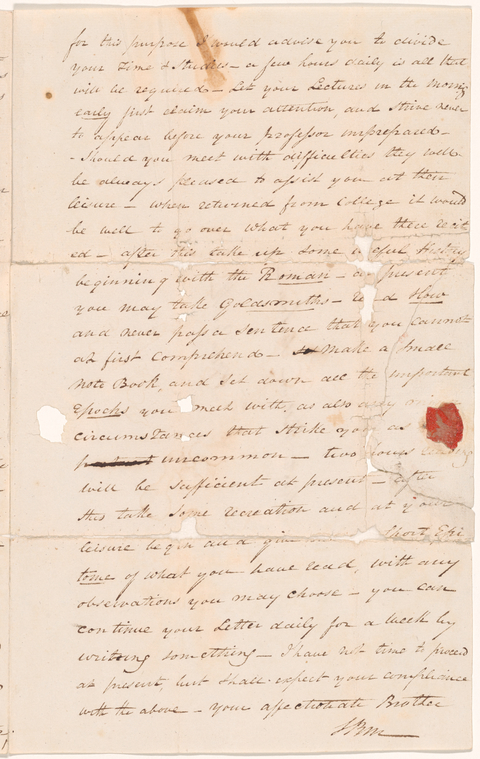 for this purpose I would advise you to divide
your Time & Studies – a few hours daily is all that
will be required – Let your Lectures in the morng
early first claim your attention, and strive never
to appear before your professor unprepared –
- Should you meet with difficulties they will
be always pleased to assist you at their
leisure – when returned from College it would
be well to go over what you have there recit
ed – after this take up some useful history
beginning with the Roman – at present
you may take Goldsmiths – read slow
and never pass a Sentence that you cannot
at first comprehend – make a small
note Book, and set down all the important
Epochs you meet with, as also any
circumstances that strike you as
uncommon – two hours
will be sufficient at present – after
this take some recreation and at your
leisure begin and give short Epi
tome of what you have read, with any
observations you may choose – you can
continue your Letter daily for a week by
writing something – I have not time to proceed
at present, but shall expect your compliance
with the above – your affectionate Brother